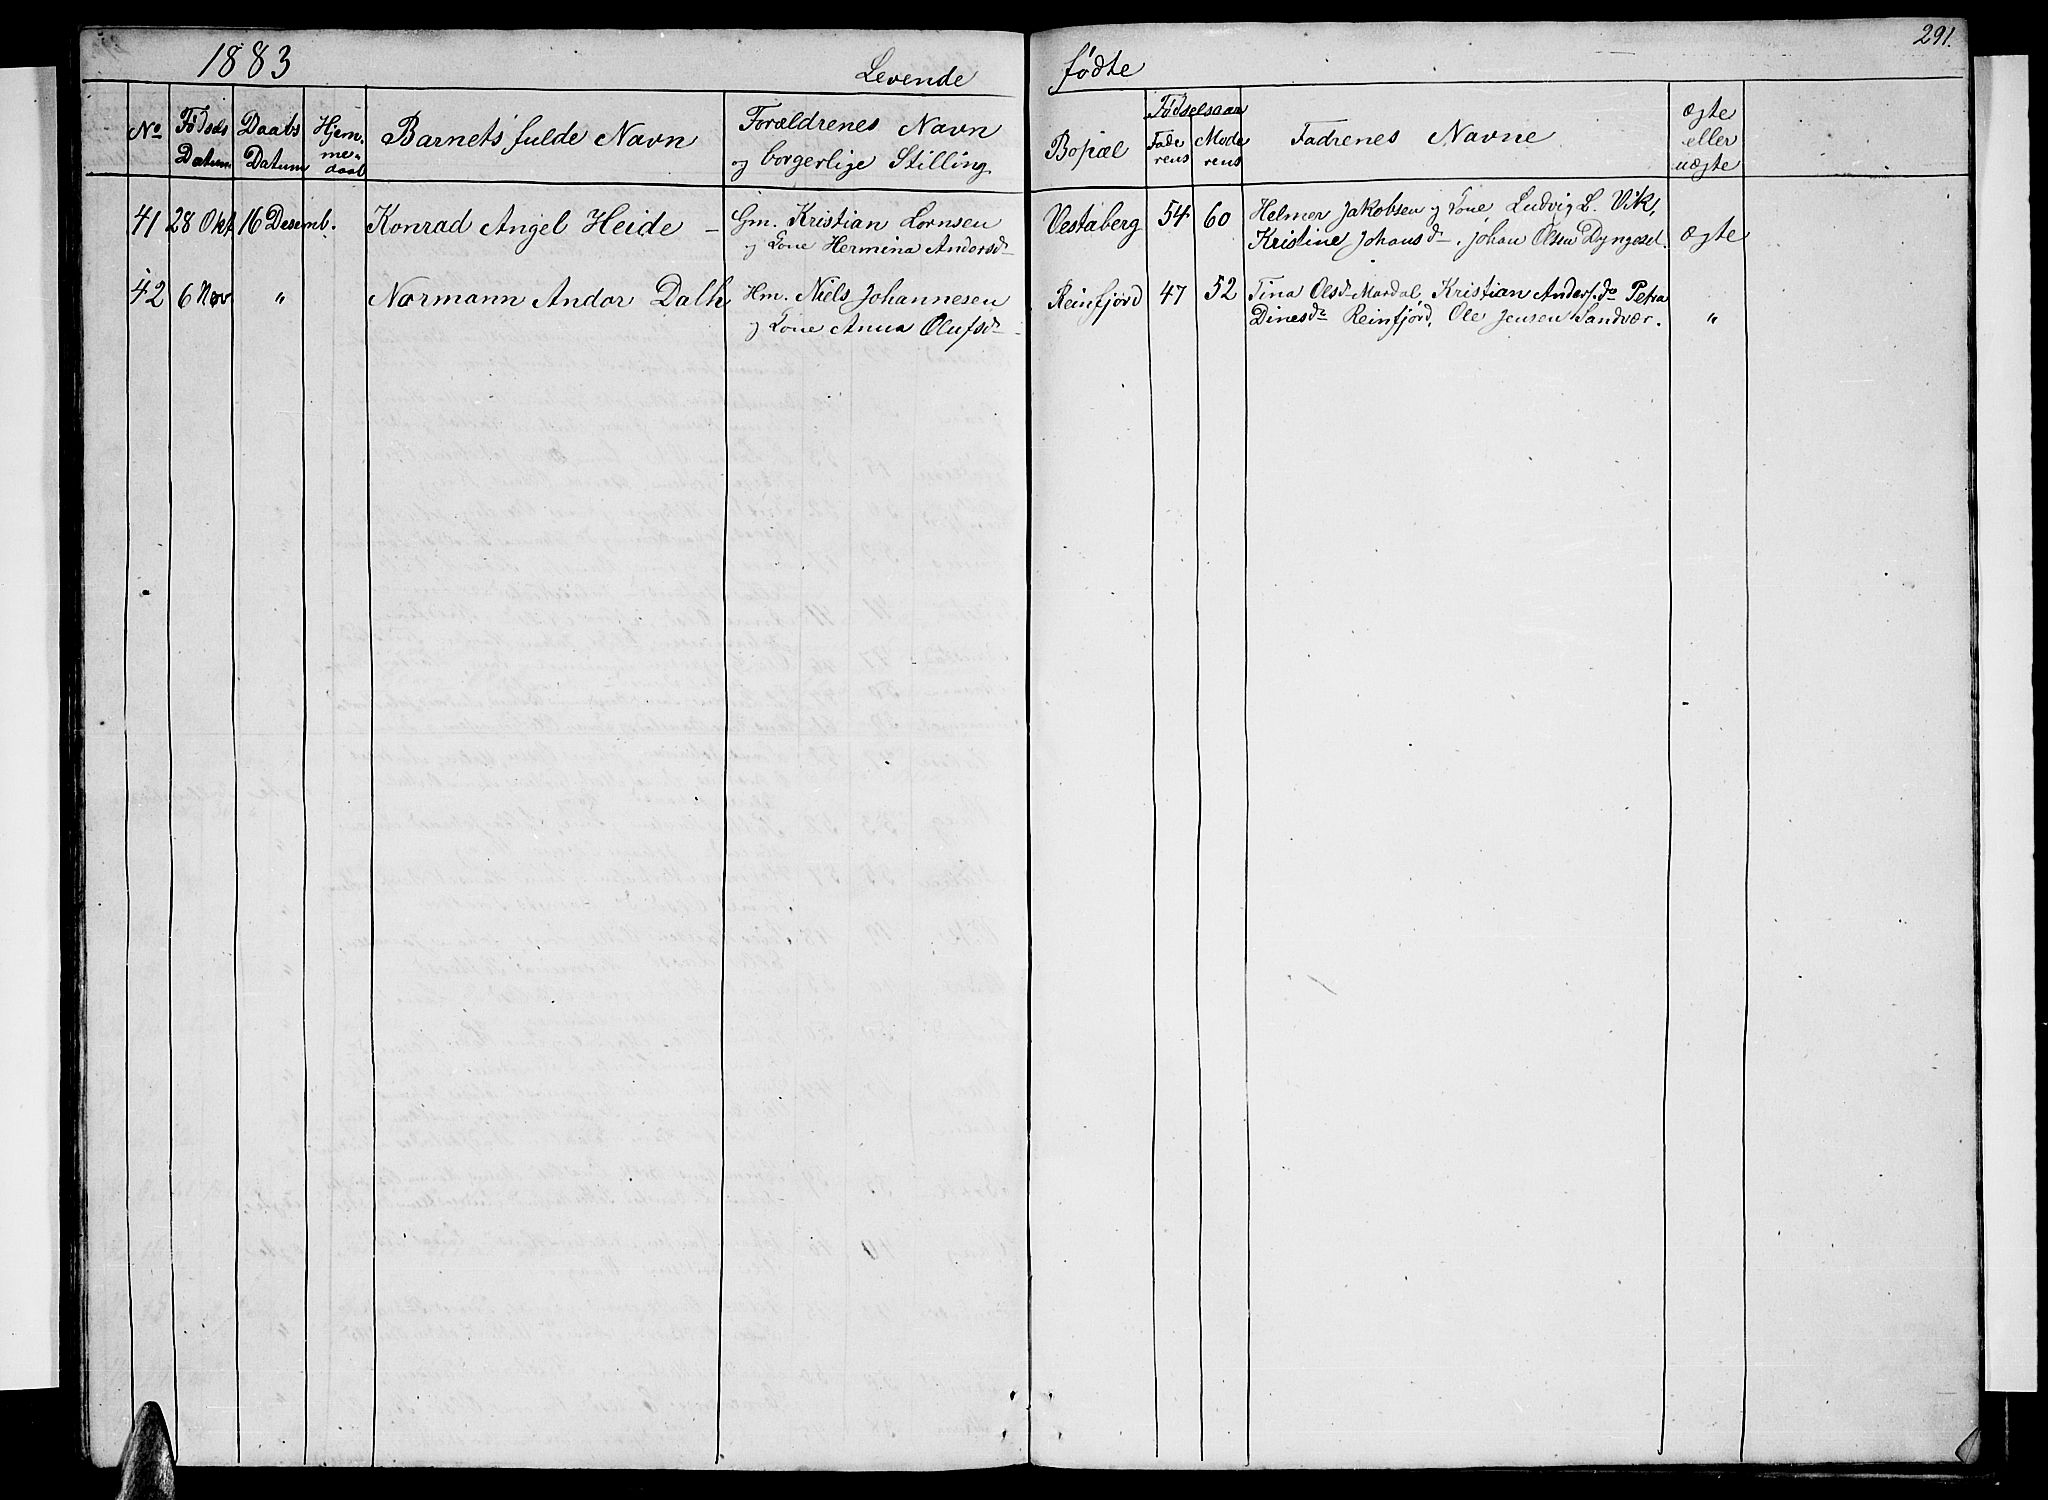 1883 Levende fødte 291.
No Fødsels Datum Daabs Datum Hjemmedaab Barnets fulde Navn Forældrenes Navn og borgerlige Stilling Bopæl Fødselsaar Faderens Moderens Fadrenes Navne ægte eller uægte
41 28 Okt 16 Desemb. Konrad Angel Heide – Gm. Kristian Lornsen Vestaberg 54 60 Helmer Jakobsen og Kone Ludvig L. Vik,
og Kone Hermina Andersdr Kristine Johansdr. Johan Olsen Dyngesel. ægte
42 6 Nov " Normann Andor Dalh Hm. Niels Johannesen Reinfjørd 47 52 Tina Olsdr Mardal, Kristian Anders. do Petra
og Kone Anna Olufsdr Dinesdr Reinfjørd, Ole Jensen Sandvær. "